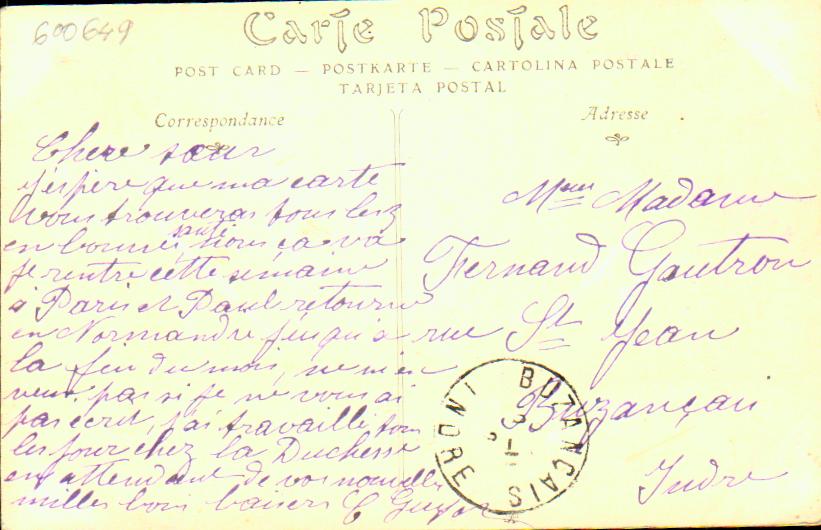 600649
Carte Postale
POST CARD — POSTKARTE — CARTOLINA POSTALE
TARJETA POSTAL
Correspondance
Chere sœur
j'éspère que ma carte
vous trouveras tous lez
en bonne santé, nous ça va
je rentre cette semaine
à Paris et Paul retourne
en Normandie jusqu'à
la fin du mois, ne m'en
veux pas si je ne vous ai
pas ecrit, j'ai travaillé tous
les jour chez la Duchesse
en attendant de vos nouvelle
milles bons baisers C
Adresse
Madame
Fernand Gautron
rue St Jean
Buzançais
Indre
BUZANÇAIS
INDRE